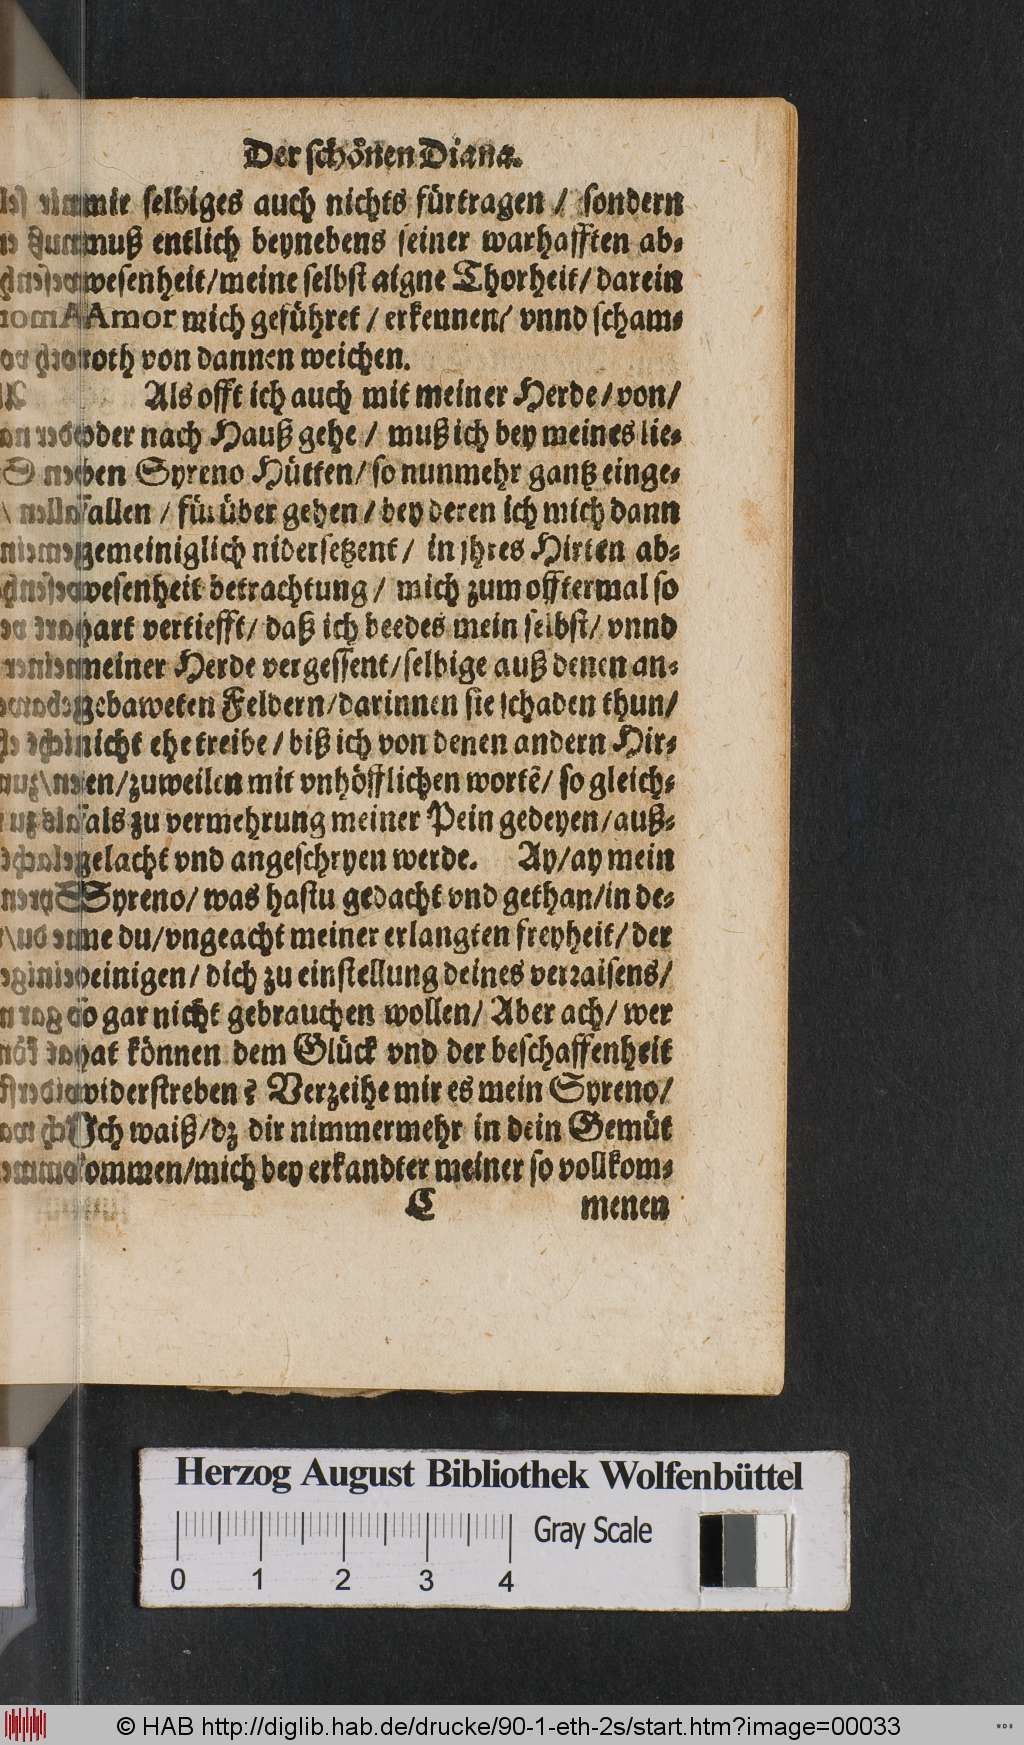 Der schönen Diana.
mir selbiges auch nichts fürtragen / sondern
muß entlich beynebens seiner warhafften ab⸗
wesenheit/meine selbst aigne Thorheit/darein
Amor mich geführet / erkennen/ vnnd scham⸗
roth von dannen weichen.
Als offt ich auch mit meiner Herde/von/
oder nach Hauß gehe / muß ich bey meines lie⸗
ben Syreno Hütten/so nunmehr gantz einge⸗
fallen / für über gehen/bey deren ich mich dann
gemeiniglich nidersetzent/ in jhres Hirten ab⸗
wesenheit betrachtung/ mich zum offtermal so
hart vertiefft/daß ich beedes mein selbst/vnnd
meiner Herde vergessent/selbige auß denen an⸗
gebaweten Feldern/darinnen sie schaden thun/
nicht ehe treibe/biß ich von denen andern Hir⸗
ten/zuweilen mit vnhöfflichen wortẽ/so gleich⸗
fals zu vermehrung meiner Pein gedeyen/auß⸗
gelacht vnd angeschryen werde. Ay/ay mein
Syreno/was hastu gedacht vnd gethan/in de⸗
me du/vngeacht meiner erlangten freyheit/der
deinigen/dich zu einstellung deines verraisens/
so gar nicht gebrauchen wollen/Aber ach/wer
hat können dem Glück vnd der beschaffenheit
widerstreben? Verzeihe mir es mein Syreno/
Ich waiß/dz dir nimmermehr in dein Gemüt
kommen/mich bey erkandter meiner so vollkom⸗
C menen
Herzog August Bibliothek Wolfenbüttel
Gray Scale
0 1 2 3 4
© HAB http://diglib.hab.de/drucke/90-1-eth-2s/start.htm?image=00033